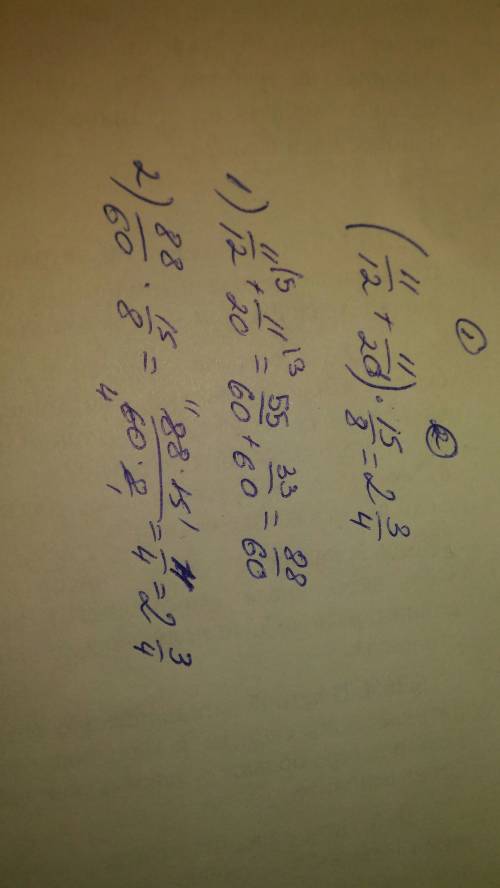 ① ②
(11/12 + 11/20) · 15/8 = 2 3/4
1) 11/12 \5 + 11/20 \3 = 55/60 + 33/60 = 88/60
2) 88/60 · 15/8 = 88 11 · 15 1 / 60 4 · 8 1 = 11/4 = 2 3/4